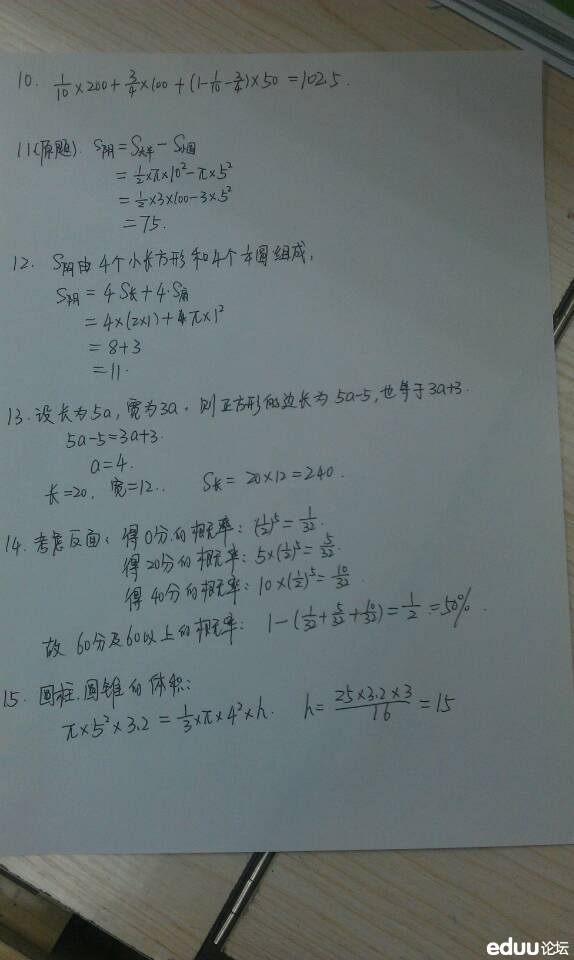 10. 1/10×200+3/4×100+(1-1/10-3/4)×50=102.5.
11(原题). S阴=S大半-S小圆
=1/2×π×10²-π×5²
=1/2×3×100-3×5²
=75.
12. S阴由4个小长方形和4个1/4圆组成,
S阴=4S长+4·S扇
=4×(2×1)+4·1/4π×1²
=8+3
=11.
13.设长为5a,宽为3a.则正方形的边长为5a-5,也等于3a+3.
5a-5=3a+3.
a=4.
长=20, 宽=12. S长=20×12=240.
14.考虑反面:得0分的概率:(1/2)⁵=1/32.
得20分的概率:5×(1/2)⁵=5/32.
得40分的概率:10×(1/2)⁵=10/32.
故60分及60以上的概率: 1-(1/32+5/32+10/32)=1/2=50%.
15.圆柱、圆锥的体积:
π×5²×3.2=1/3×π×4²×h. h=25×3.2×3/16=15
eduu论坛